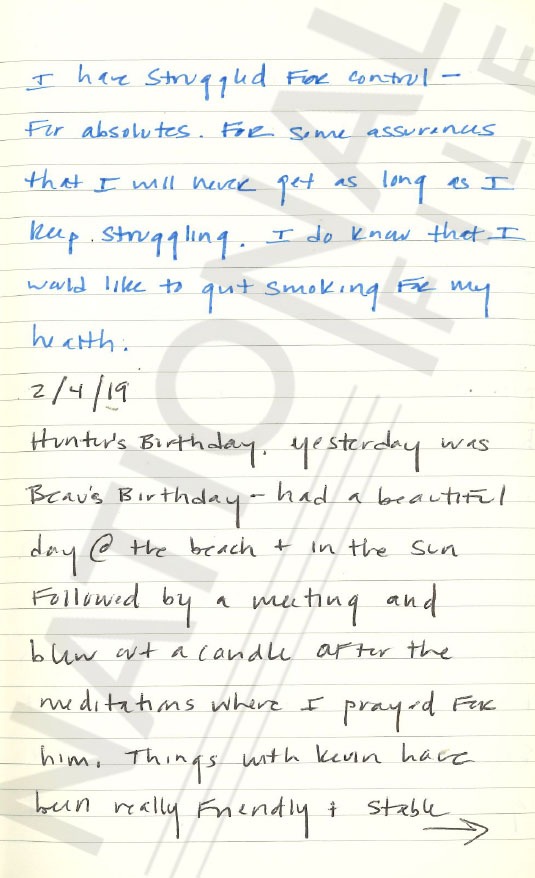 I have struggled for control –
For absolutes. For some assurances
that I will never get as long as I
keep struggling. I do know that I
would like to quit smoking for my
health.
2/4/19
Hunter's Birthday. yesterday was
Beau's Birthday – had a beautiful
day @ the beach + in the sun
Followed by a meeting and
blew out a candle after the
meditations where I prayed for
him. Things with Kevin have
been really Friendly + stable
→
NATIONAL
FILE